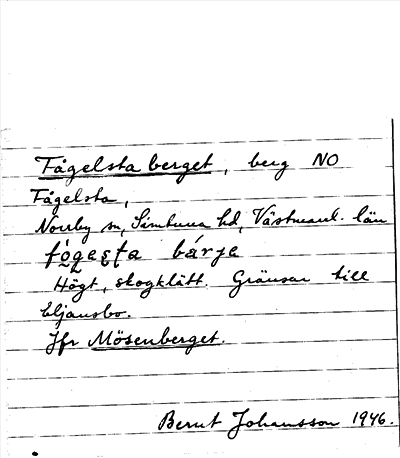 Fågelsta berget, berg NO
Fågelsta,
Norrby sn, Simtuna hd, Västmanl. län
fógesta bárje
Högt, skogklätt. Gränsar till
Eljansbo.
Jfr Mösenberget.
Bernt Johansson 1946.